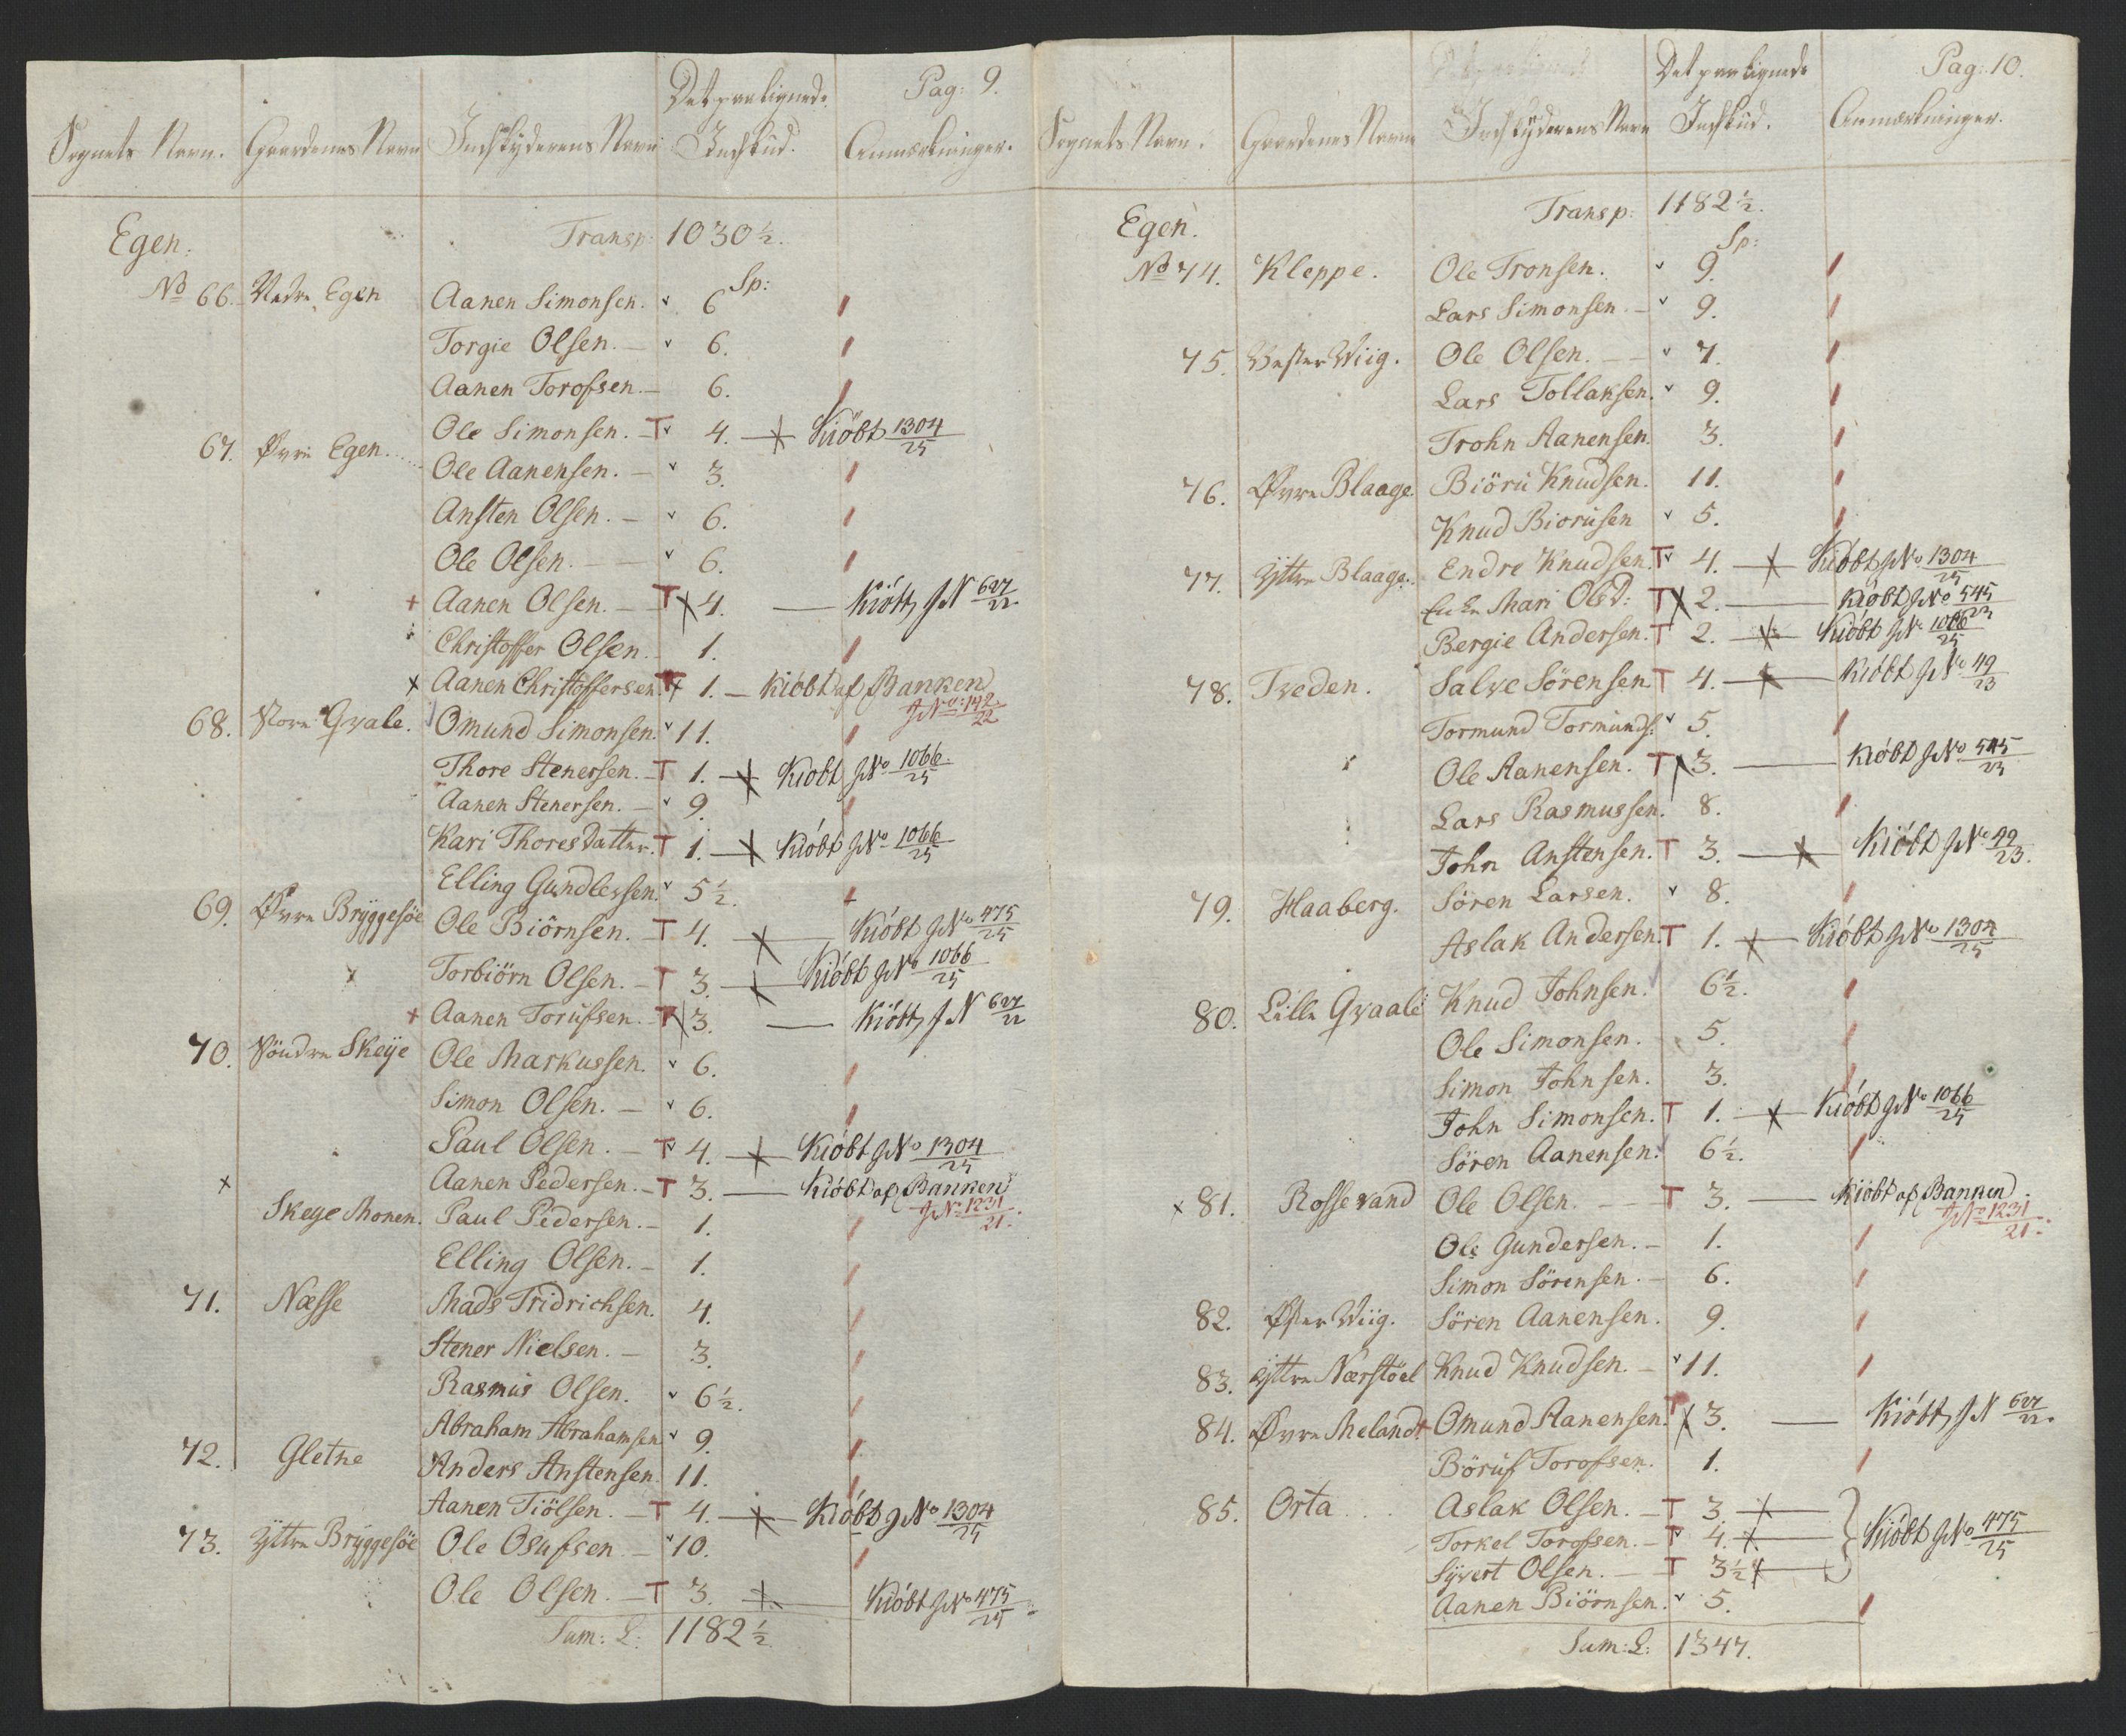 Pag: 9.
Sognets Navn. Gaardenes Navn Indskyderens Navn Det paalignede Indskud. Anmærkninger.
Egen. Transp: 1030½.
Sp:
No 66. Nedre Egen Aanen Simonsen. v 6
Torgie Olsen. — v 6.
Aanen Torofsen. — 6.
67. Øvre Egen. Ole Simonsen. T v 4. Kiöbt 1304/25
Ole Aanensen. — v 3.
Ansten Olsen. — v 6.
Ole Olsen. — v 6.
+ Aanen Olsen. — T x 4. — Kiöbt J N 627/22.
Christoffer Olsen. 1.
x Aanen Christoffersen. T x 1. — Kiöbt af Banken
J No: 142/22
68. Store Qvale. Omund Simonsen. v 11.
Thore Stenersen. — T 1. Kiöbt J No 1066/25
Aanen Stenersen. — v 9.
Kari Thoresdatter. T 1. Kiöbt J No 1066/25
Elling Gundlessen. v 5½.
69. Øvre Bryggesöe Ole Biörnsen. — T 4. Kiöbt J No 475/25
x Torbiörn Olsen. — T 3. Kiöbt J No 1066/25
+ Aanen Torufsen. — T x 3. — Kiöbt J N 627/22
70. Söndre Skeÿe Ole Markussen. v 6.
Simon Olsen. — v 6.
Paul Olsen. — T v 4. Kiöbt J No 1304/25
x Aanen Pedersen. — T 3. — Kiöbt af Banken
J No: 1231/21.
Skeye Monen. Paul Pedersen. — 1.
Elling Olsen. — 1.
71. Næsse Mads Fridrichsen. 4.
Stener Nielsen. — 3.
Rasmus Olsen. v 6½.
Abraham Abrahamsen v 9.
72. Gletne Anders Anstensen. 11.
Aanen Tiölsen. — T 4. Kiöbt J No 1304/25
73. Yttre Bryggesöe Ole Osufsen. — v 10.
Ole Olsen. — T 3. Kiöbt J No 475/25
Sum: L: 1182½
Pag: 10.
Sognets Navn. Gaardenes Navn Indskyderens Navn Det paalignede Indskud. Anmærkninger.
Egen. Transp: 1182½.
Sp:
No 74. Kleppe. Ole Tronsen. v 9.
Lars Simonsen. — v 9.
75. Vester Wiig. Ole Olsen. — v 7.
Lars Tollaksen. v 9.
Trohn Aanensen. 3.
76. Øvre Blaage. Biörü Knudsen. 11.
Knud Biorüsen v 5.
77. Yttre Blaage. Endre Knudsen. T v 4. Kiöbt J No 1304/25
Enke Mari Olsd: T x 2. — Kiöbt J No 545/23
Bergie Andersen. T 2. Kiöbt J No 1066/25
78. Tveden. Salve Sörensen T 4. Kiöbt J No 49/23
Tormund Tormunds: v 5.
Ole Aanensen. T x 3. — Kiöbt J No 545/23
Lars Rasmussen. 8.
John Anstensen. T 3. Kiöbt J No 49/23.
79. Haaberg. Sören Larsen. v 8.
Aslak Andersen. T 1. Kiöbt J No 1304/25
80. Lille Qvaale Knud Johnsen. 6½.
Ole Simonsen. 5.
Simon Johnsen. 3.
John Simonsen. T 1. Kiöbt J No 1066/25
Sören Aanensen. 6½.
x 81. Rossevand Ole Olsen. — T 3. — Kiöbt af Banken.
J No 1231/21.
Ole Gundersen. — 1.
Simon Sörensen. — 6.
82. Øster Wiig. Sören Aanensen. 9.
83. Yttre Nærstöel Knud Knudsen. — v 11.
84. Øvre Meland. + Omund Aanensen. T x 3. — Kiöbt J N 627/22.
Böruf Torofsen. 1.
85. Orta Aslak Olsen. — T 3.
Torkel Torofsen. — T 4. Kiöbt J No 475/25
Syvert Olsen. — T 3½
Aanen Biörnsen. v 5.
Sum: L: 1347.